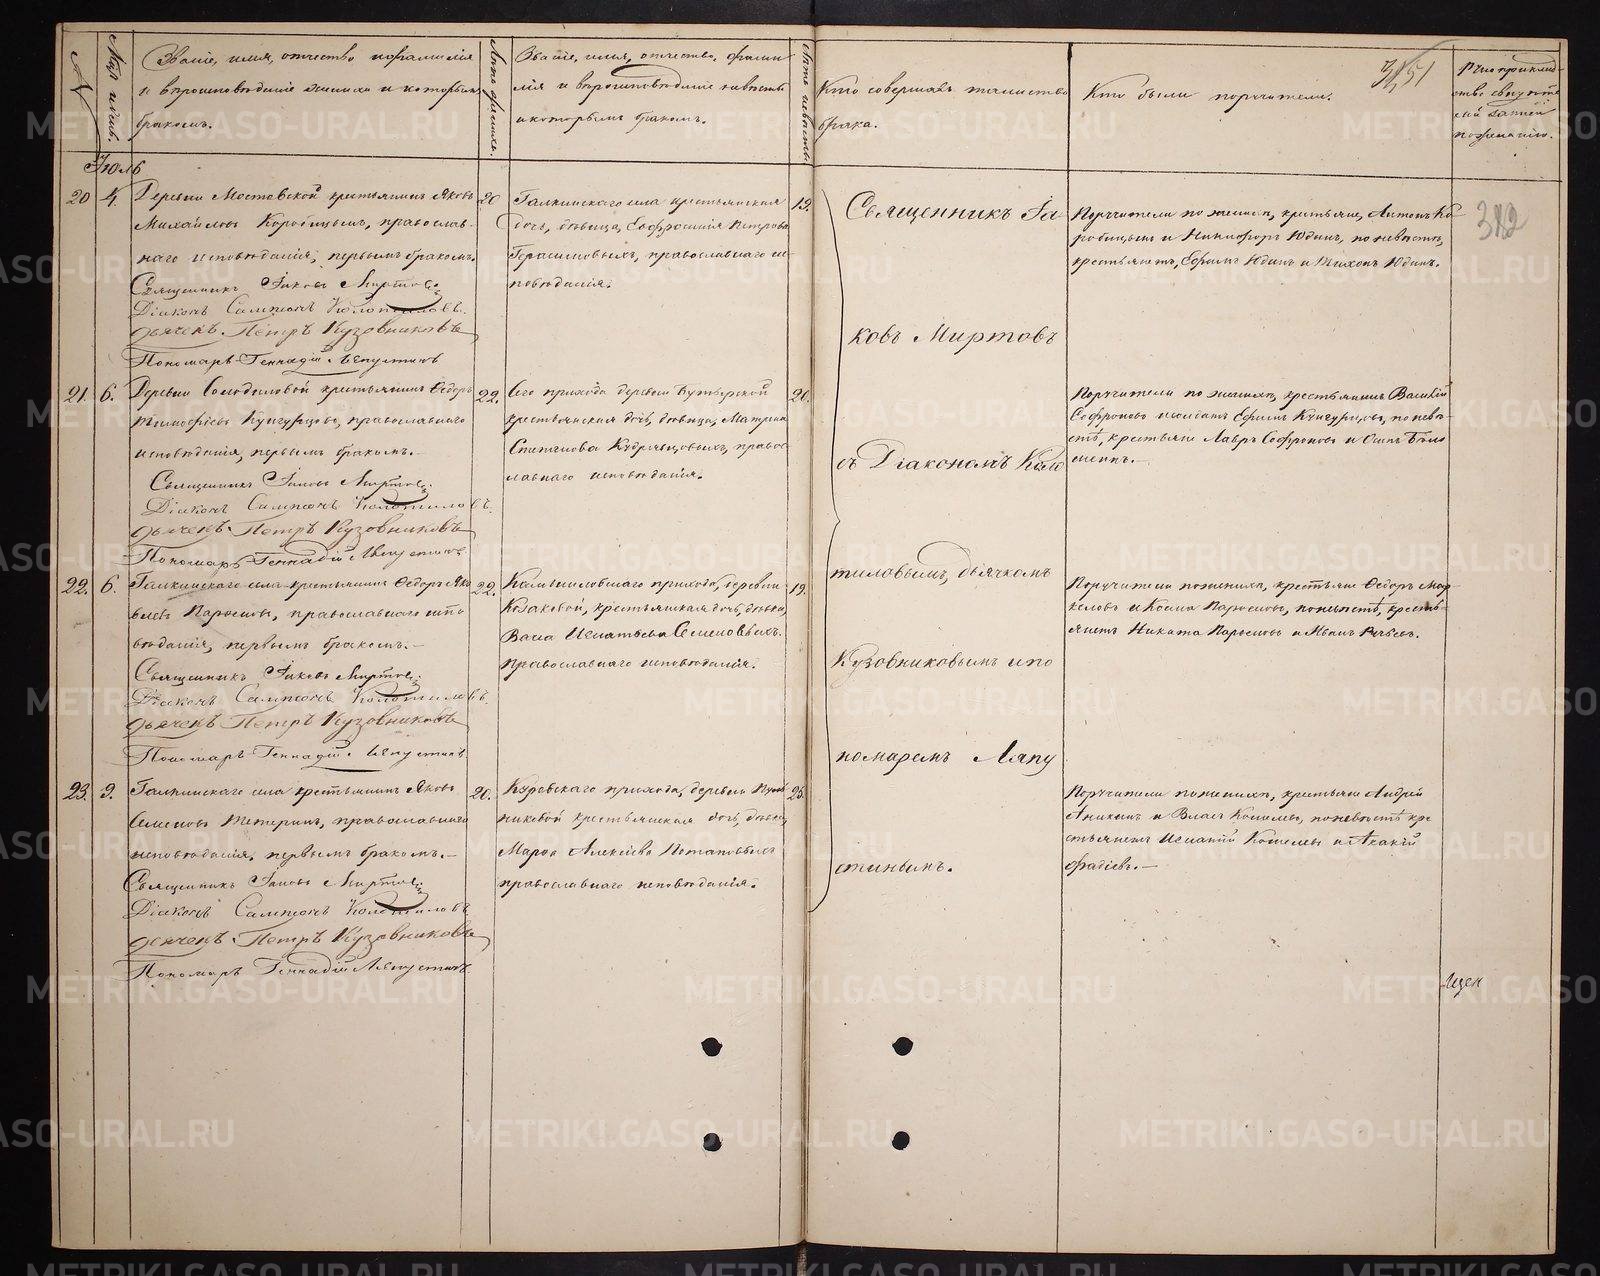 №
Мѣс. и день.
Званіе, имя, отчество и фамилія
и вѣроисповѣданіе жениха и которымъ
бракомъ.
Лѣта жениха.
Званіе, имя, отчество, фами-
лія и вѣроисповѣданіе невѣсты
и которымъ бракомъ.
Лѣта невѣсты
Кто совершалъ таинство
брака.
Кто были поручители.
Іюль
20
4.
Деревни Мостовской крестьянинъ Яковъ
Михайловъ Коробицынъ, православ-
наго исповѣданія, первымъ бракомъ.
Священникъ Іаковъ Миртовъ
Діаконъ Сампсонъ Колотиловъ.
Дьячекъ Петръ Кузовниковъ
Пономарь Геннадій Ляпустинъ
20
Галкинскаго села крестьянская
дочь, дѣвица, Евфросинія Петрова
Герасимовыхъ, православнаго ис-
повѣданія.
19.
Священникъ Іа-
ковъ Миртовъ
съ Діакономъ Коло
тиловымъ, дьячкомъ
Кузовниковымъ и по
номаремъ Ляпу
стинымъ.
Поручители по женихѣ, крестьяне, Антонъ Ко-
робицынъ и Никифоръ Юдинъ, по невѣстѣ,
крестьянетъ, Ефимъ Юдинъ и Тихонъ Юдинъ.
312
21.
6.
Деревни Солодиловой крестьянинъ Ѳедоръ
Тимофѣевъ Кунгурцовъ, православнаго
исповѣданія, первымъ бракомъ.—
Священникъ Іаковъ Миртовъ
Діаконъ Сампсонъ Колотиловъ.
Дьячекъ Петръ Кузовниковъ
Пономарь Геннадій Ляпустинъ
22.
Сего прихода деревни Бутырской
крестьянская дочь, дѣвица, Матрена
Степанова Кудрявцовыхъ, право-
славнаго исповѣданія.
20.
Поручители по женихѣ, крестьянинъ Василій
Софроновъ и солдатъ Ефимъ Кунгурцовъ, по невѣ-
стѣ, крестьяне Лавръ Софроновъ и
22.
6.
Галкинскаго села крестьянинъ Ѳедоръ Яко
влевъ Парѳеновъ, православнаго испо
вѣданія, первымъ бракомъ.—
Священникъ Іаковъ Миртовъ
Діаконъ Сампсонъ Колотиловъ.
Дьячекъ Петръ Кузовниковъ
Пономарь Геннадій Ляпустинъ
22.
Камышловскаго прихода, деревни
Козаковой, крестьянская дочь, дѣвица,
Васса Игнатьева Семеновыхъ.
православнаго исповѣданія.
19.
Поручители по женихѣ, крестьяне Ѳедоръ Мар-
келовъ и Косма Парѳеновъ, по невѣстѣ, кресть-
янетъ Никита Парѳеновъ и Иванъ
23.
9.
Галкинскаго села крестьянинъ Яковъ
Семеновъ Тетеринъ, православнаго
исповѣданія, первымъ бракомъ.—
Священникъ Іаковъ Миртовъ
Діаконъ Сампсонъ Колотиловъ
Дьячекъ Петръ Кузовниковъ
Пономарь Геннадій Ляпустинъ
20.
Куровскаго прихода, деревни
крестьянская дочь, дѣвица,
Марѳа Алексѣева Потаповыхъ
православнаго исповѣданія.
Поручители по женихѣ, крестьяне Андрей
Аникинъ и Власъ Кошелевъ, по невѣстѣ кре
стьянетъ Игнатій Кошелевъ и Акакій
Фадѣевъ.—
METRIKI.GASO-URAL.RU